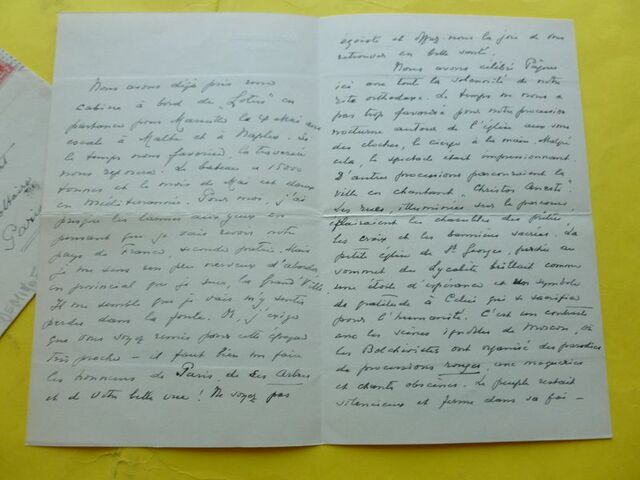 Nous avons déjà pris une
cabine à bord du „Lotus" en
partance pour Marseille le 4 Mai avec
escale à Malte et à Naples. Si
le temps nous favorise, la traversée
nous reposera. Le bateau a 15000
tonnes et le mois de Mai est doux
en Méditerranée. Pour moi, j'ai
presque les larmes aux yeux en
pensant que je vais revoir notre
pays de France, seconde patrie. Mais
je me sens un peu nerveux d'aborder,
en provincial que je suis, la Grand'Ville
Il me semble que je vais m'y sentir
perdu dans la foule. Et, j'exige
que vous soyez remis pour cette époque
très proche — il faut bien me faire
les honneurs de Paris, de ses Arbres
et de votre belle vue ! Ne soyez pas
égoïste et offrez-nous la joie de vous
retrouver en belle santé.
Nous avons célébré Pâques
ici avec toute la solennité de notre
rite orthodoxe. Le temps ne nous a
pas trop favorisé pour notre procession
nocturne autour de l'église aux sons
des cloches, le cierge à la main. Malgré
cela, le spectacle était impressionnant.
D'autres processions parcouraient la
ville en chantant, Christos Anesti.
Les rues, illuminées sur le parcours,
éclairaient les chasubles des prêtres,
les croix et les bannières sacrées. La
petite église de St Georges, perchée au
sommet du Lycabète brillait comme
une étoile d'espérance et un symbole
de gratitude à Celui qui se sacrifia
pour l'humanité. C'est un contraste
avec les scènes ignobles de Moscou, où
les Bolchévistes ont organisé des parodies
de processions rouges, avec moqueries
et chants obscènes. Le peuple restait
silencieux et ferme dans sa foi —
Voltaire
Paris